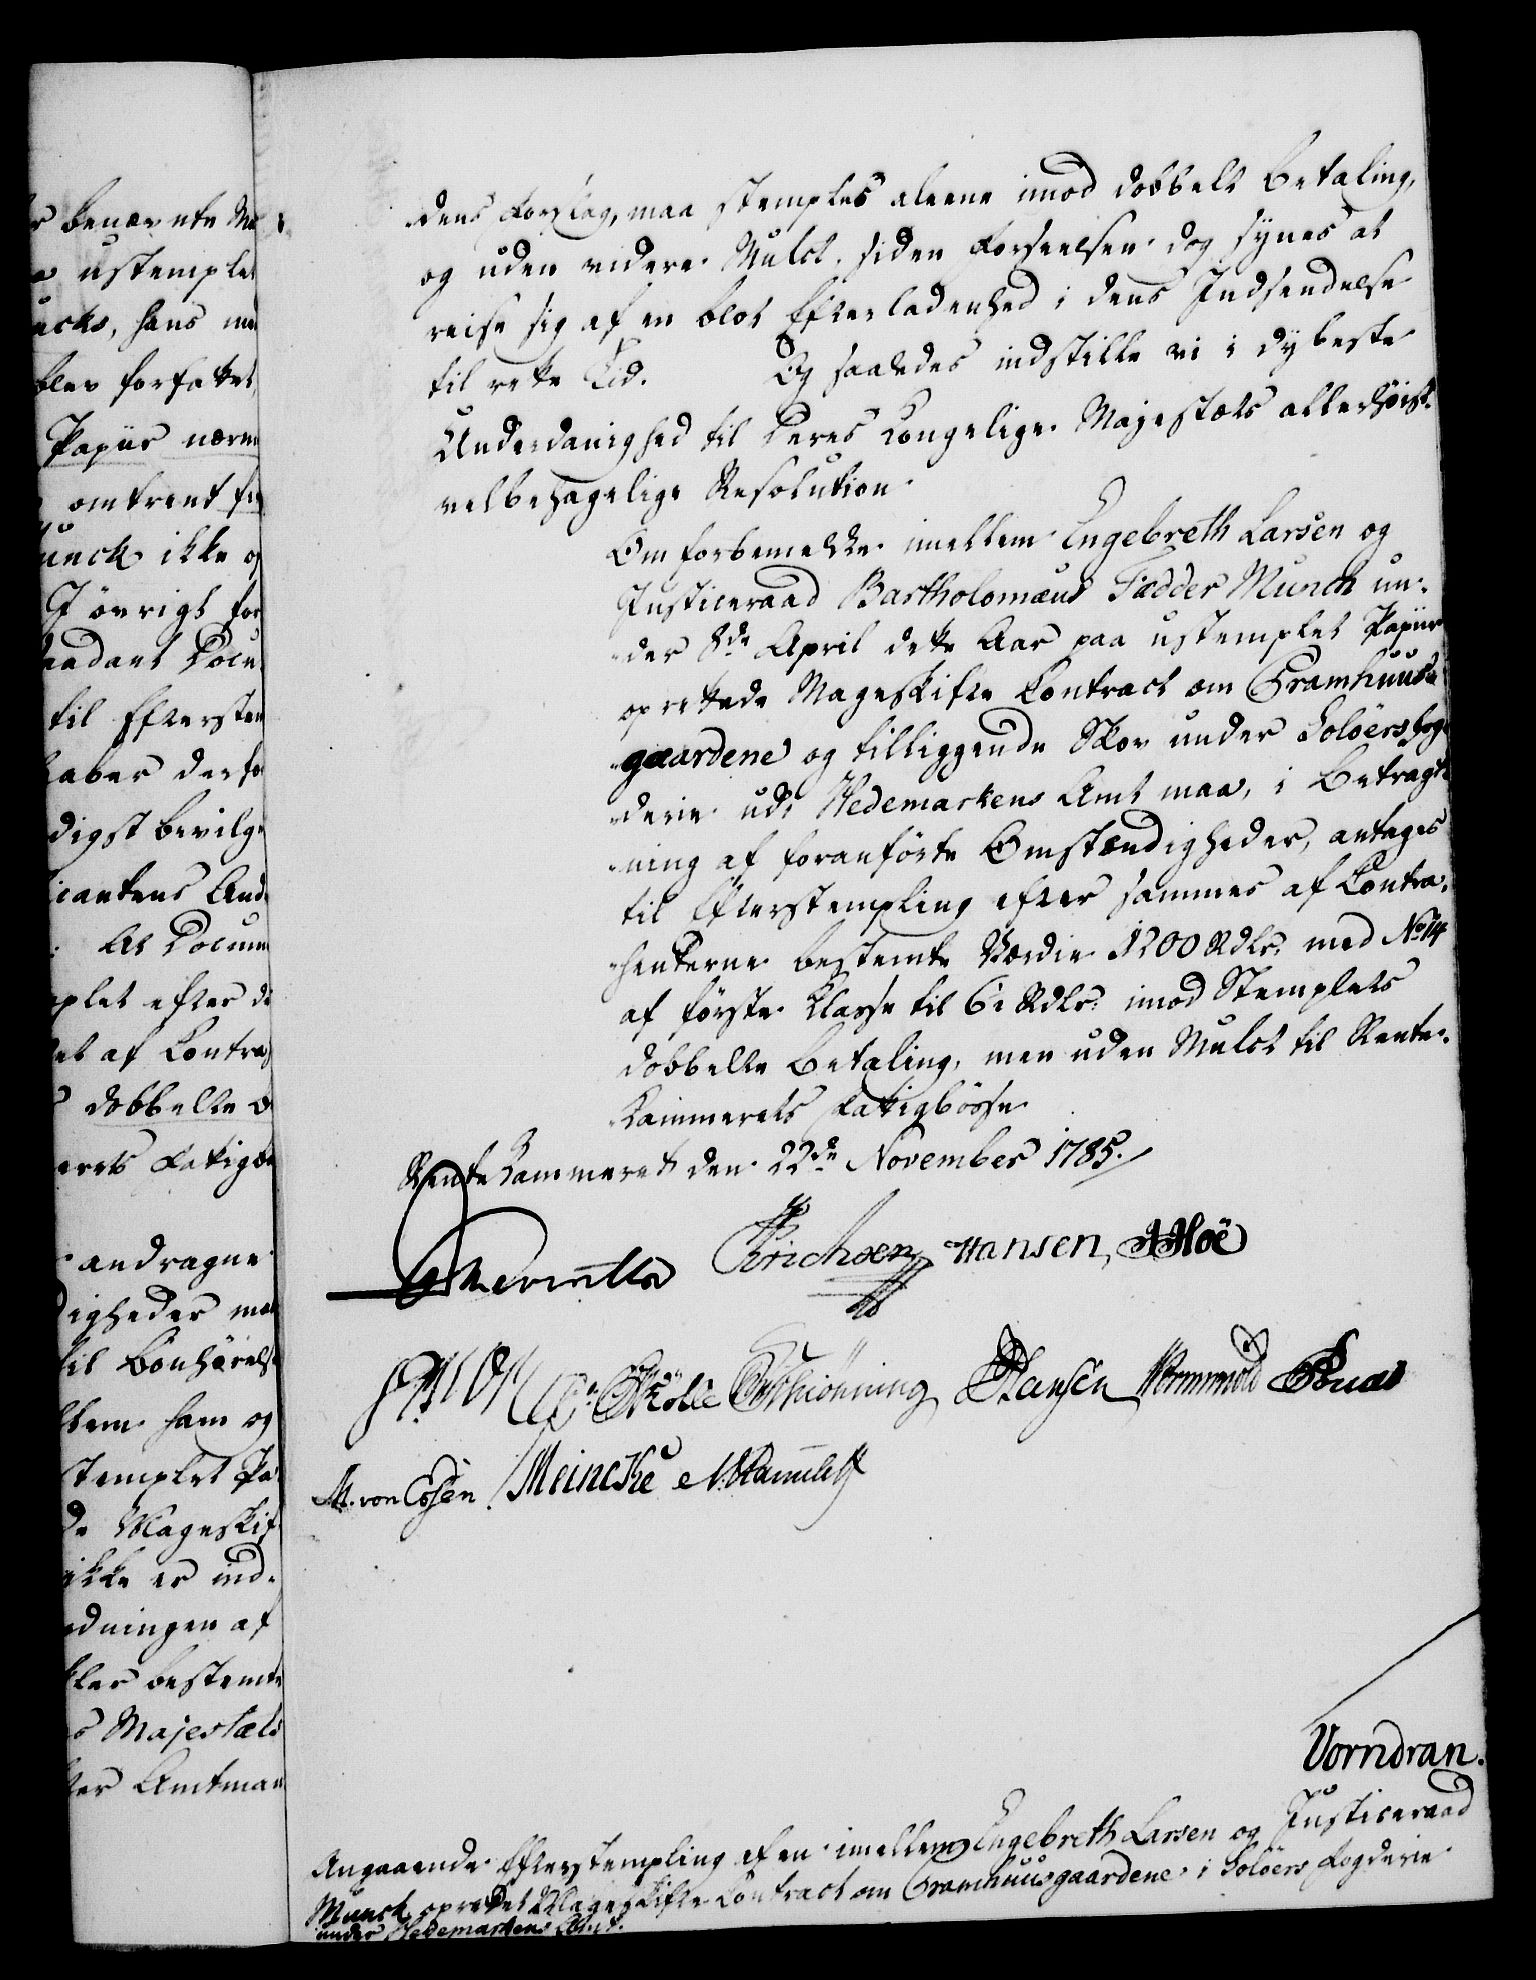 r benævnte Ma
ustemplet
uncks, hans
blev forfattet,
Papiir nærm
omtrent
unck ikke og
I øvrigt for
saadant Docu
til Efterstem
haver derfo
digst bevilge
icantens And
At Docum
mplet efter
af Contra
dobbelte
erets Fatigbø
andragne
digheder maa
til Bønhørelse
ham og
stemplet Pa
de Mageskif
ikke er ind-
dningen af
bestemte
s Majestæts
ter Amtman
dens Forslag, maa stemples aleene imod dobbelt Betaling,
og uden videre Mulct, siden Forseelsen dog synes at
reise sig af en blot Efterladenhed i dens Indsendelse
til rette Tid. Og saaledes indstille vi i dybeste
Underdanighed til Deres Kongelige Majestæts allerhøist-
velbehagelige Resolution
Om forbemeldte imellem Engebreth Larsen og
Justiceraad Bartholomæus Fædder Munch un-
der 8de April dette Aar paa ustemplet Papiir
oprettede Mageskifte Contract om Gramhuus-
gaardene og tilliggende Skov under Soløers Fog-
derie udi Hedemarkens Amt maa, i Betragt-
ning af foranførte Omstændigheder, antages
til Efterstempling efter sammes af Contra-
henterne bestemte Værdie 1200 Rdlr. med No 14
af første Classe til 6 Rdlr. imod Stemplets
dobbelte Betaling, men uden Mulct til Rente-
Kammerets Fatigbøsse
Rente Kammeret den 22de November 1785.
Erichsen Hansen,
Schiønning Hansen Wormskiold
M. von Essen Meincke
Vorndran.
Angaaende Efterstempling af en imellem Engebreth Larsen og Justiceraad
Munck oprettet Mageskifte Contract om Gramhuusgaardene i Soløers Fogderie
under Hedemarkens Amt.